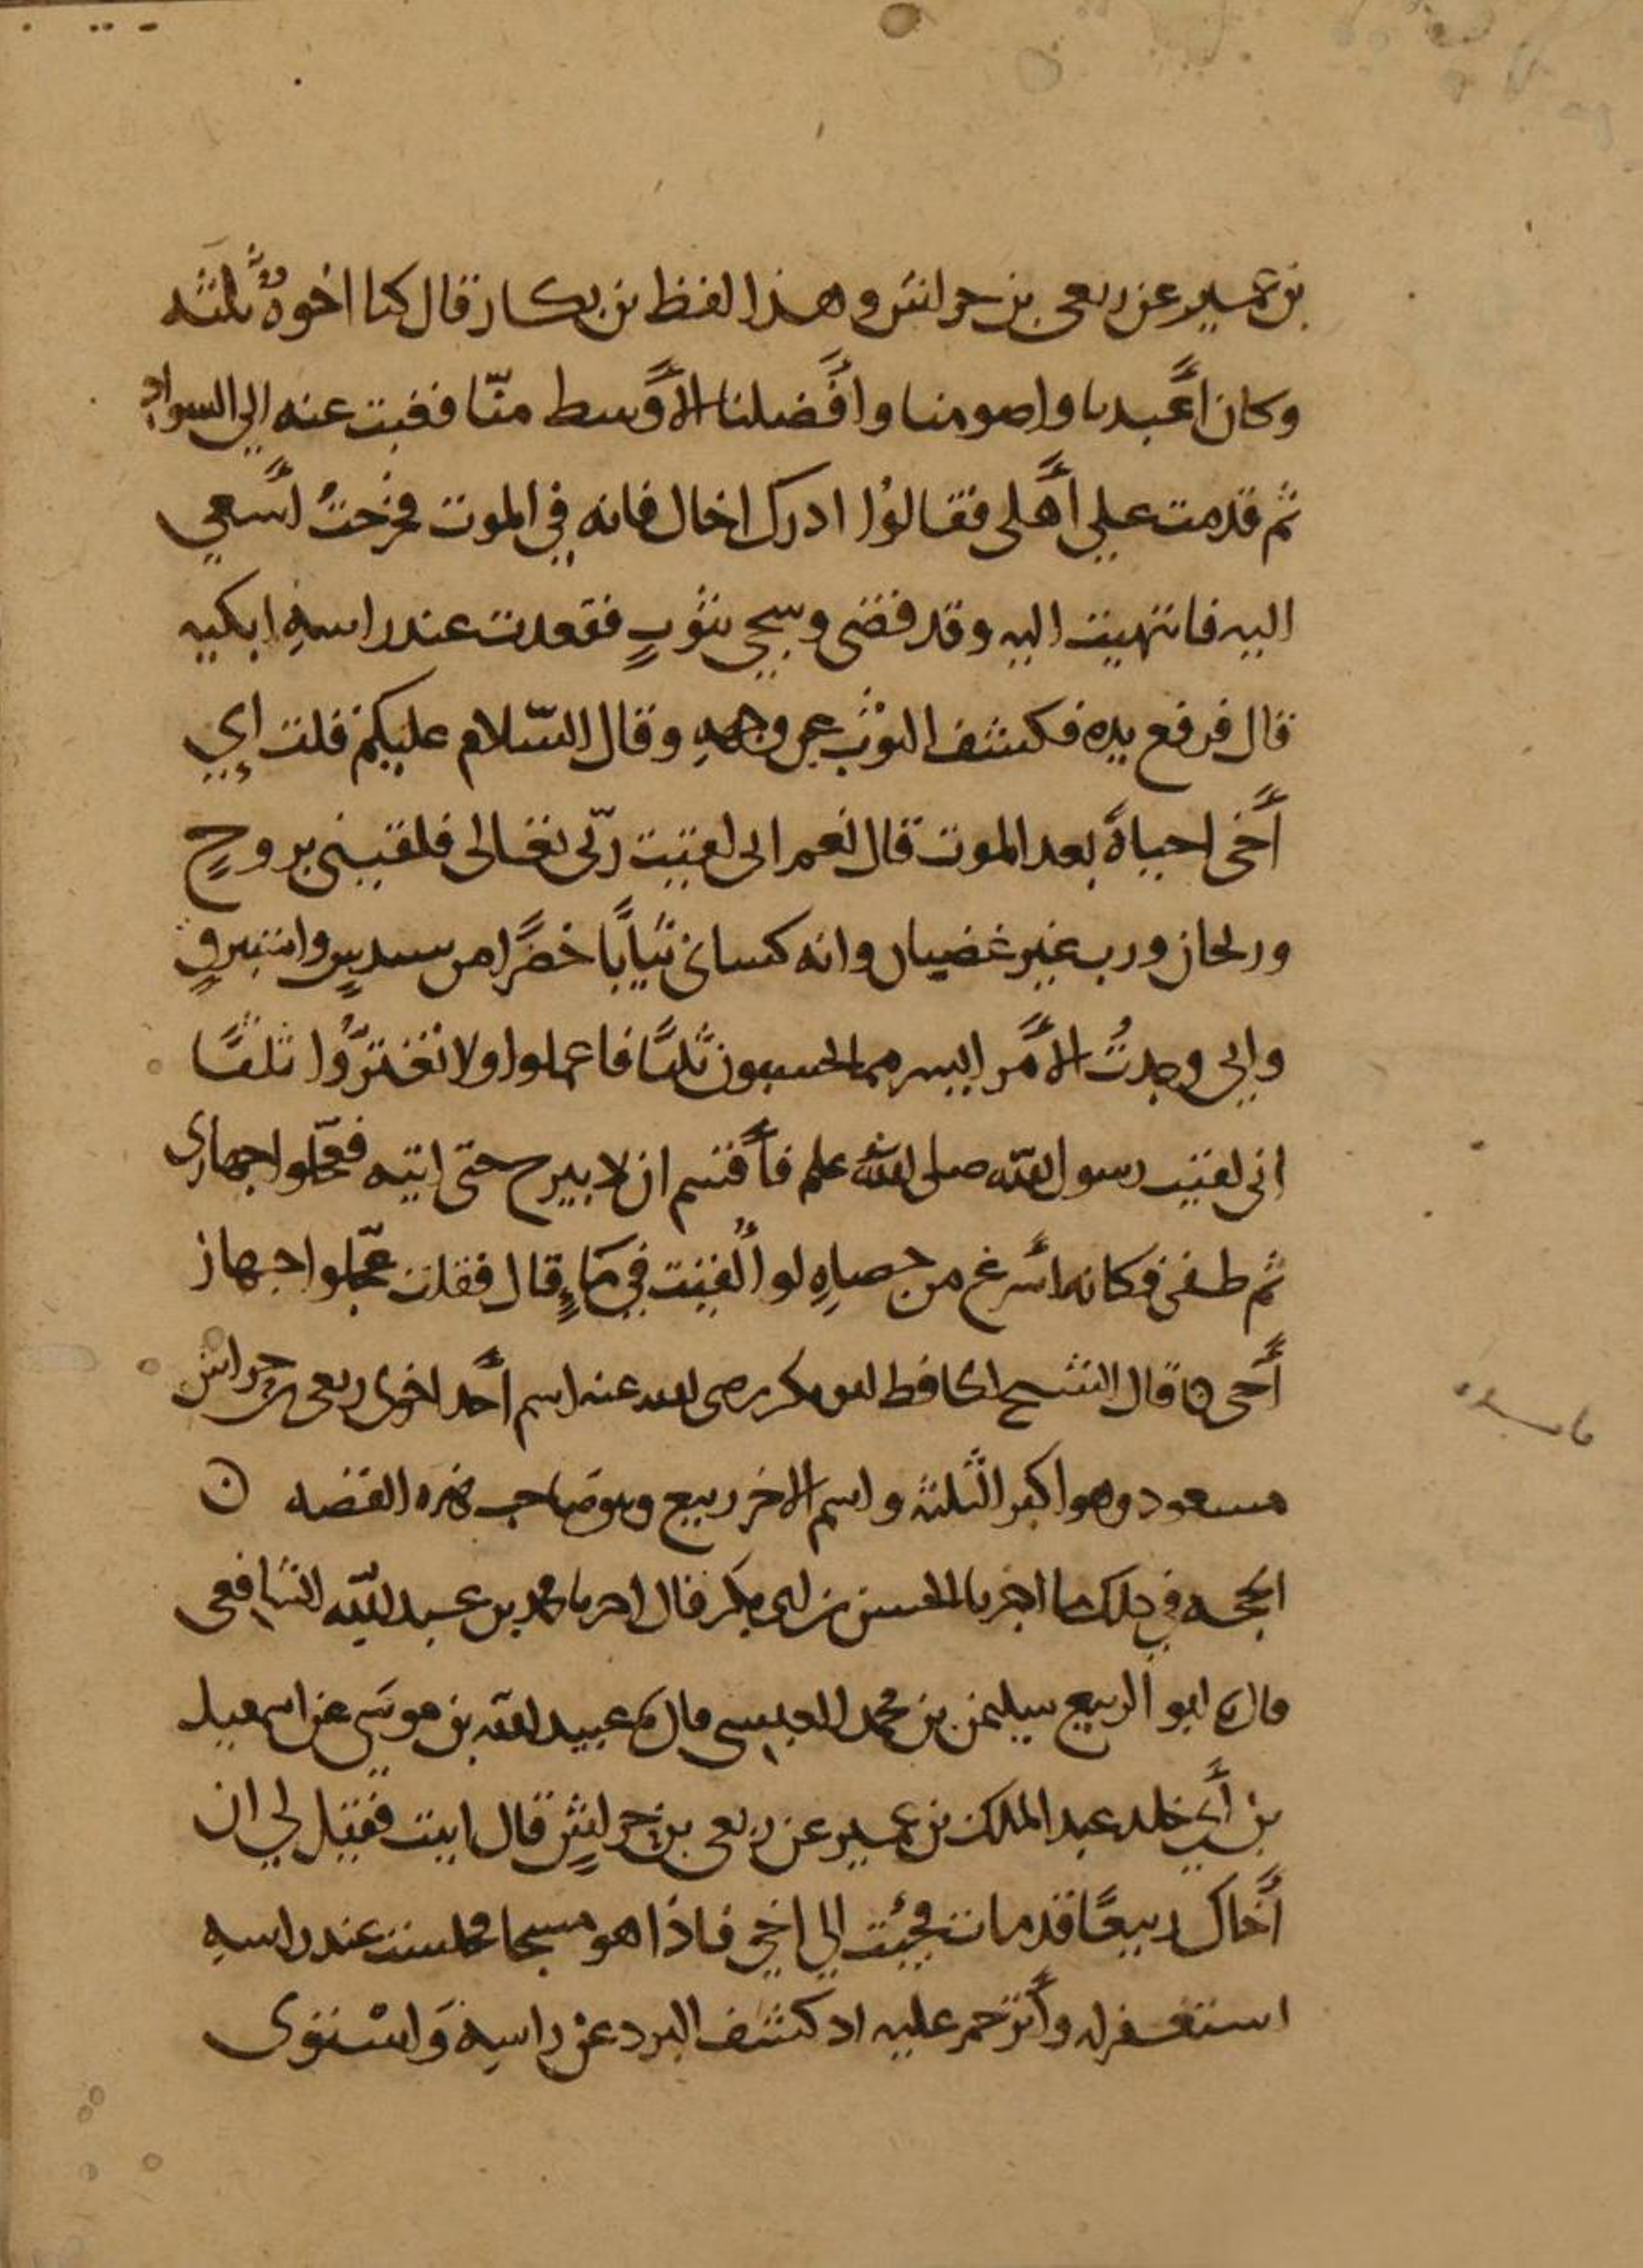 بن عمير عن ربعي بن حراش وهذا لفظ بن بكار قال كنا اخوةٌ ثلثه
وكان أعبدنا واصومنا وأفضلنا الأوسط منّا فغبت عنه الي السواد
ثم قدمت علي أهلي فقالوا ادرك اخاك فانه في الموت فخرجتُ أسعي
اليه فانتهيت اليه وقد قضى وسجي بثوبٍ فقعدت عند راسهِ ابكيه
قال فرفع يده فكشف الثوب عن وجههِ وقال السّلام عليكم قلت إي
أخي احياةً بعد الموت قال نعم اني لقيت ربّي تعالى فلقيني بروحٍ
وريحان ورب غير غضبان وانه كساني ثيابًا خضرًا من سندسٍ واستبرقٍ
واني وجدتُ الأمر ايسر مما تحسبون ثلثًا فاعملوا ولا تغترّوا ثلثًا
اني لقيت رسول الله صلى الله علم فأقسم ان لا يبرح حتى اتيه فعجّلوا جهازي
ثم طفى فكانه أسرع من حصاهِ لو ألقيت في مَاءٍ قال فقلت عجّلوا جهاز
أخي ن قال الشيخ الحافظ ابو بكر رضى الله عنه اسم أحد اخوي ربعي بن حراش
مسعود وهو اكبر الثلثة واسم الاخر ربيع وهو صاحب هذه القصه ن
الحجه في ذلك ما اخبرنا الحسن بن ابي بكر قال اخبرنا محمد بن عبد الله الشافعي
قال نا ابو الربيع سليمن بن محمد العبسي قال نا عبيد الله بن موسَى عن اسمعيل
بن أبي خلد عبد الملك بن عمير عن ربعي بن حراشٍ قال اتيت فقيل لي ان
أخاك ربيعًا قد مات فجئت الي اخي فاذا هو مسجا فجلست عند راسهِ
استغفر له وأترحم عليه اذ كشف البرد عن راسهِ وَاسْتوى